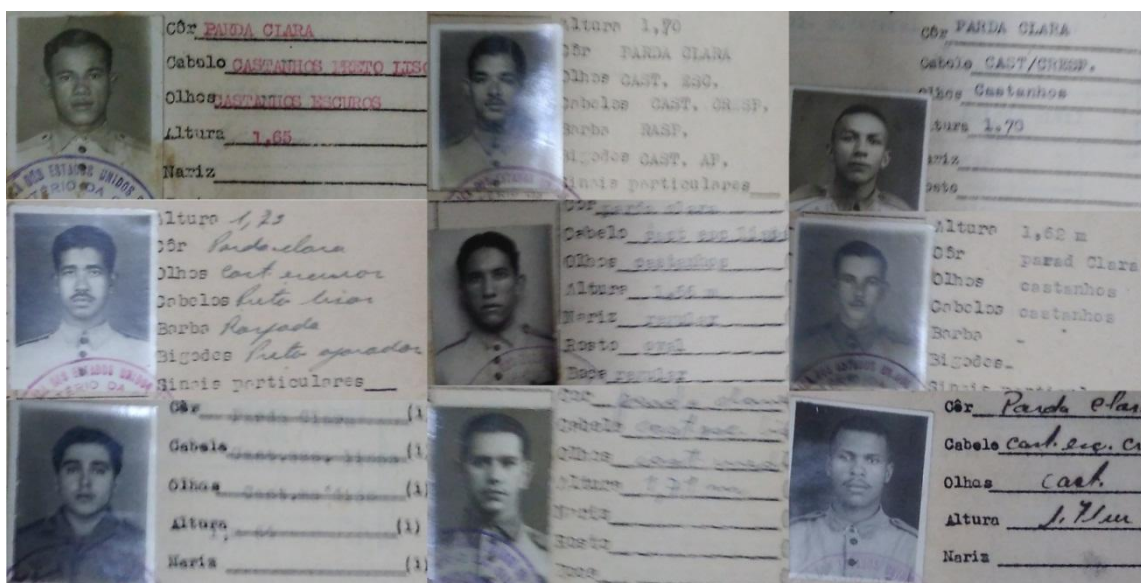 Côr PARDA CLARA
Cabelo CASTANHOS PRETO LISO
Olhos CASTANHOS ESCUROS
Altura 1,65
Nariz
DOS ESTADOS UNIDOS
Altura 1,70
Côr PARDA CLARA
Olhos CAST. ESC.
Cabelos CAST. CRESP.
Barba RASP.
Bigodes CAST. AP.
Sinais particulares
Côr PARDA CLARA
Cabelo CAST/CRESP.
Olhos Castanhos
Altura 1.70
Nariz
Rosto
Altura 1,73
Côr Parda clara
Olhos Cast escuros
Cabelos Preto lisos
Barba Raspada
Bigodes Preto aparados
Sinais particulares
DOS ESTADOS UNIDOS
RIO DA
Côr parda clara
Cabelo cast esc lisos
Olhos castanhos
Altura 1,66 m
Nariz regular
Rosto oval
Boca regular
Altura 1,62 m
Côr parad Clara
Olhos castanhos
Cabelos castanhos
Barba -
Bigodes-
Sinais
Côr Parda Clara (1)
Cabelo Cast. esc. lisos (1)
Olhos Cast. (1)
Altura (1)
Nariz (1)
Côr parda clara
Cabelo cast
Olhos cast med
Altura 1,71 m
Nariz
Rosto
Boca
Côr Parda clar
Cabelo cast. esc. cr
Olhos cast.
Altura
Nariz